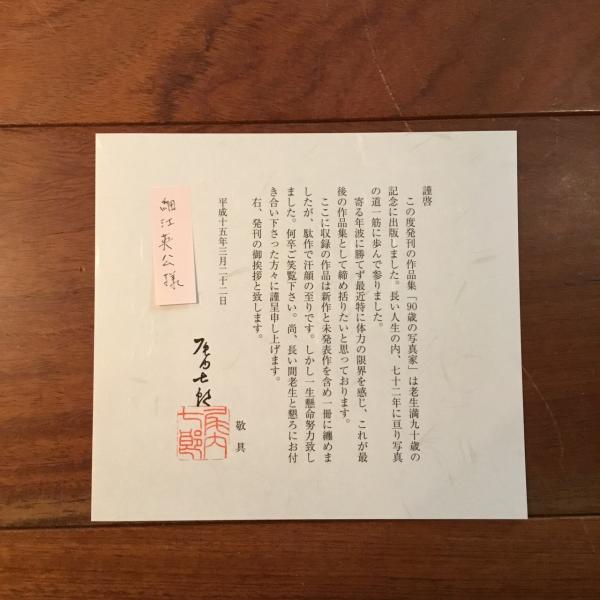 謹啓
この度発刊の作品集「90歳の写真家」は老生満九十歳の
記念に出版しました。長い人生の内、七十二年に亘り写真
の道一筋に歩んで参りました。
寄る年波に勝てず最近特に体力の限界を感じ、これが最
後の作品集として締め括りたいと思っております。
ここに収録の作品は新作と未発表作を含め一冊に纏めま
したが、駄作で汗顔の至りです。しかし一生懸命努力致し
ました。何卒ご笑覧下さい。尚、長い間老生と懇ろにお付
き合い下さった方々に謹呈申し上げます。
右、発刊の御挨拶と致します。
敬具
平成十五年三月二十二日
尾内七郎
尾内七郎
細江英公様